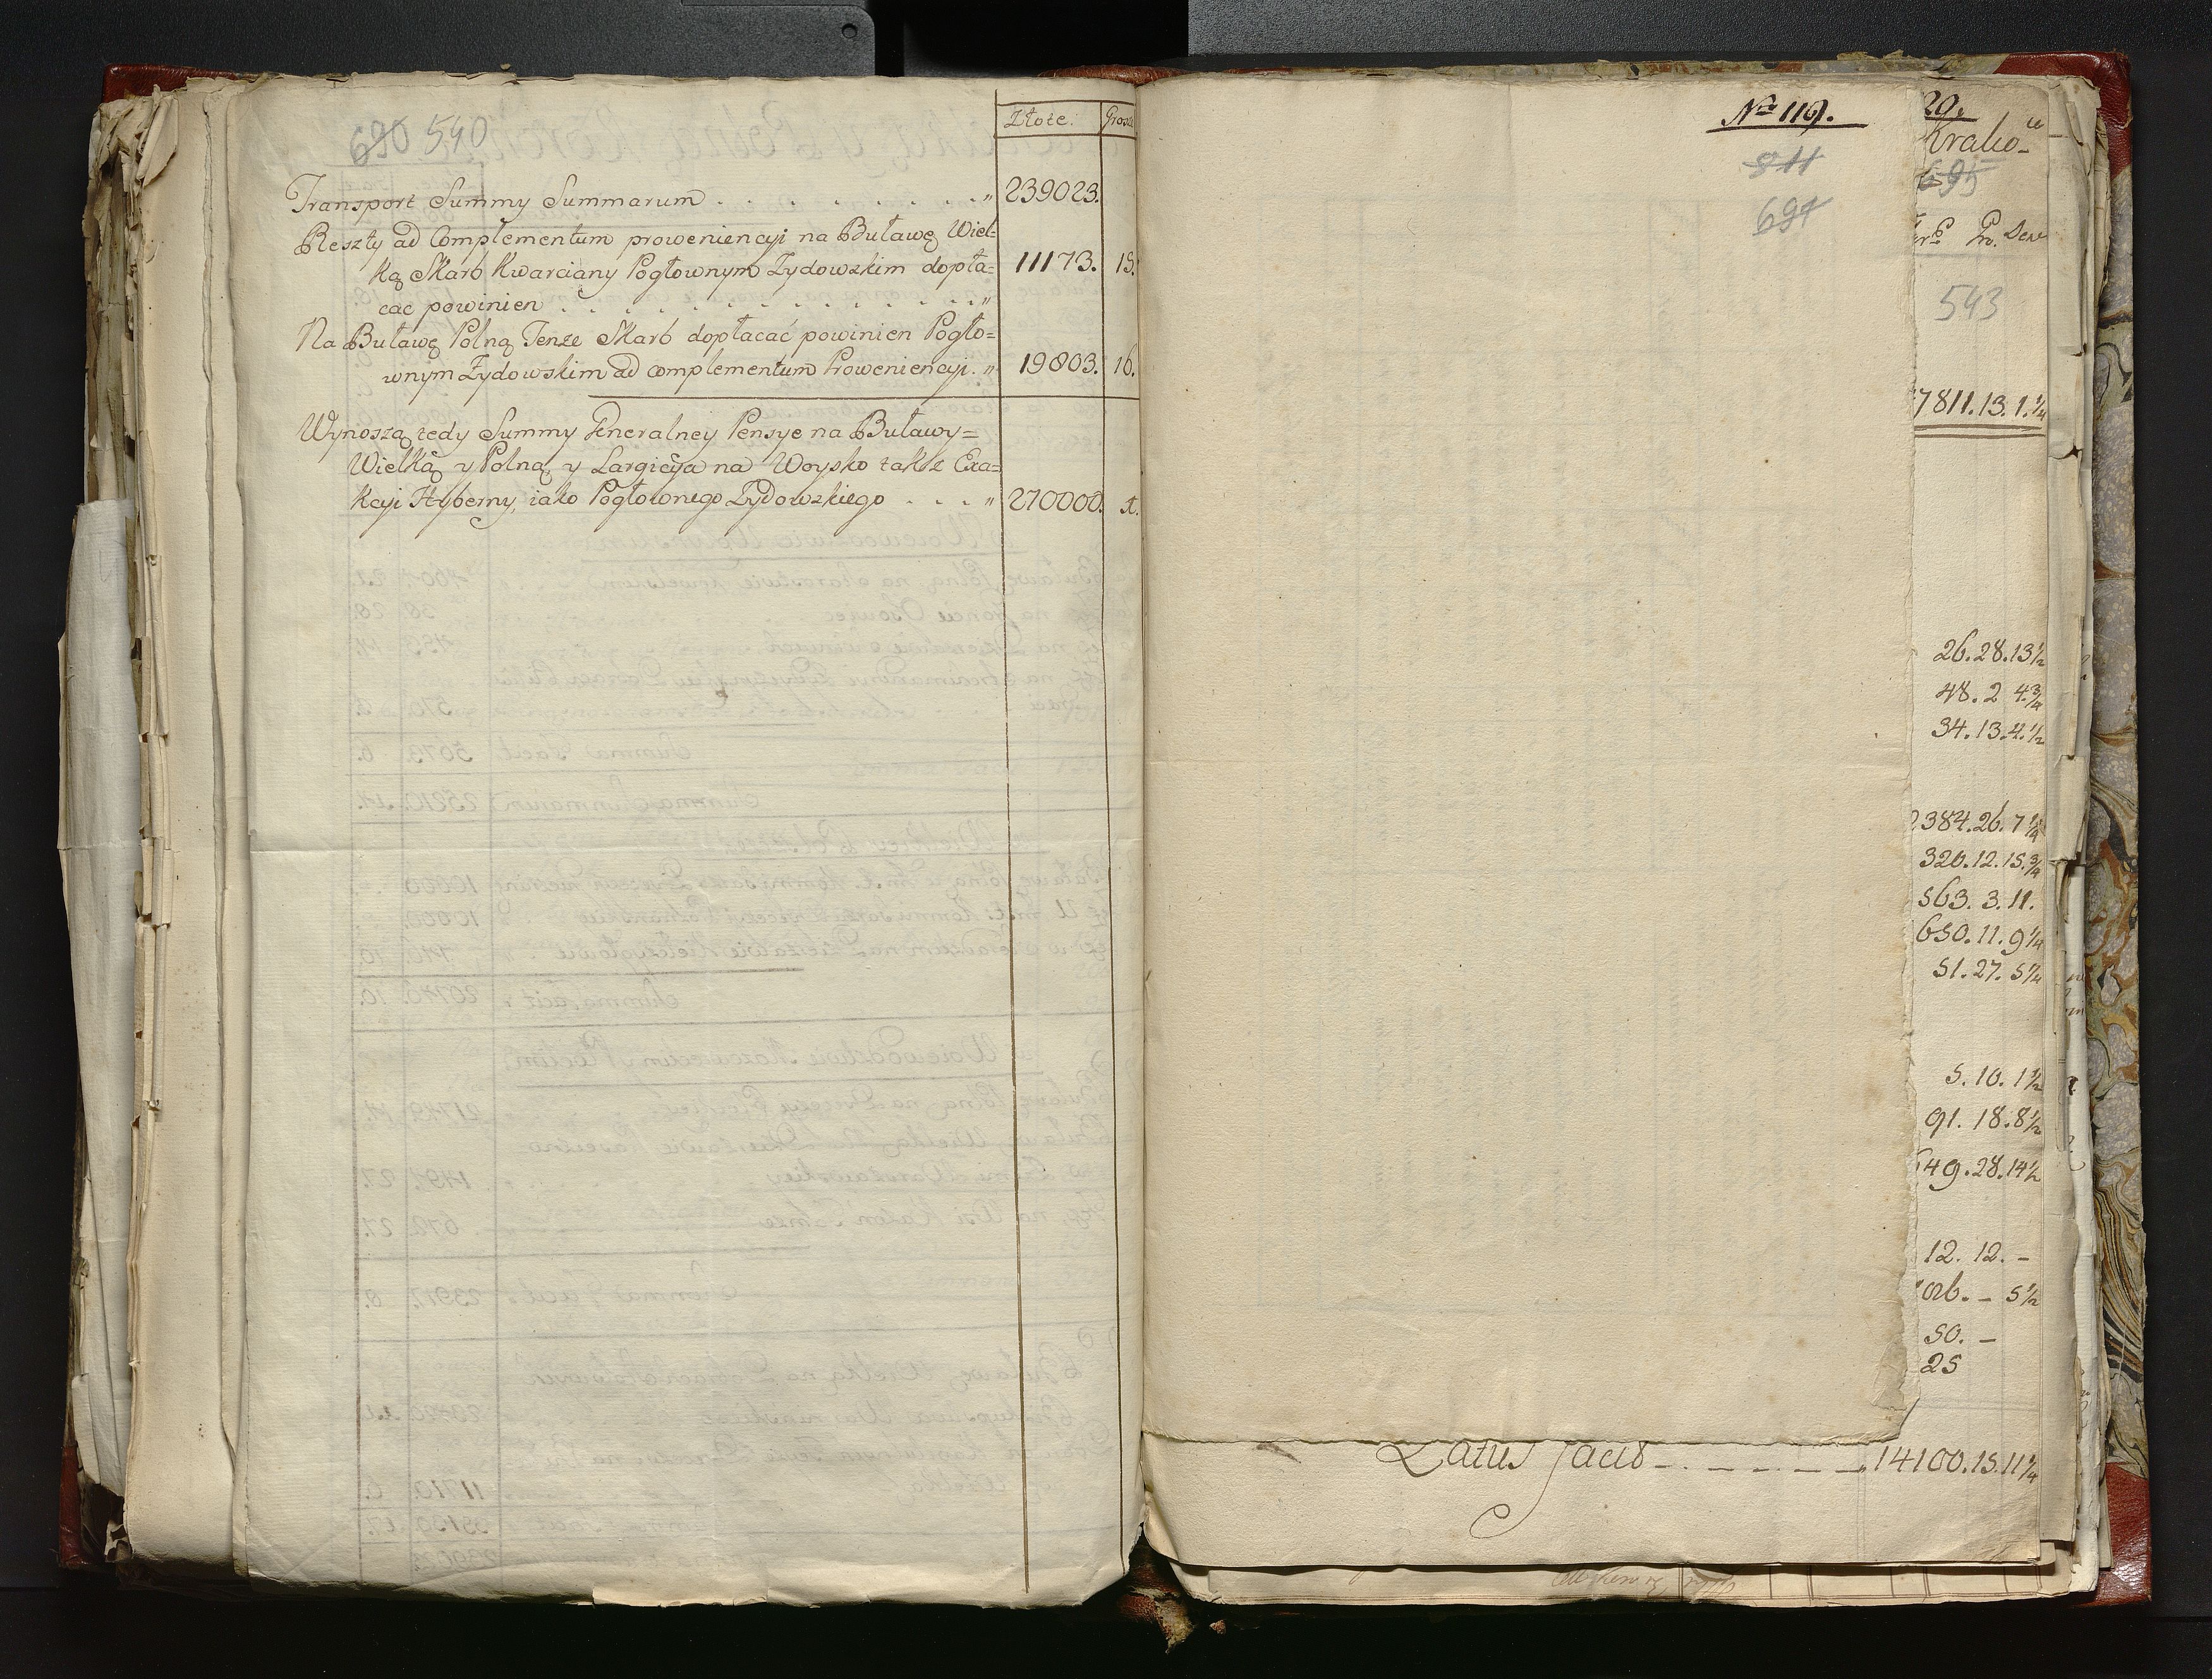 690 540
Złote. Grosze
Transport Summy Summarum . . . . . . . . . " 239023.
Reszty ad Complementum proweniencyi na Buławę Wiel=
ką Skarb Kwarciany Pogłownym Żydowskim dopła= 11173. 15.
cac powinien . . . . . . . . . . . "
Na Buławę Polną Tenże Skarb dopłacać powinien Pogło=
wnym Żydowskim ad complementum Proweniencyi. " 19803. 16.
Wynoszą tedy Summy Generalney Pensye na Buławy=
Wielką y Polną, y Largicya na Woysko takze Exa=
kcyi Hyberny, iako Pogłownego Żydowskiego . . . " 270000. 1.
No 119.
811
697
29.
Krako-
695
Gr. Den
543
7811.13.1.1/4
26.28.13 1/2
48.2 4.3/4
34.13.4.1/2
2384.26.7 1/4
326.12.15.3/4
563.3.11.
650.11.9 1/4
51.27.5 1/4
5.10.1 1/2
91.18.8 1/2
649.28.14 1/2
12.12.-
- 5 1/2
50.-
25
Latus facit - . - - - - - " 14100.15.11 1/4